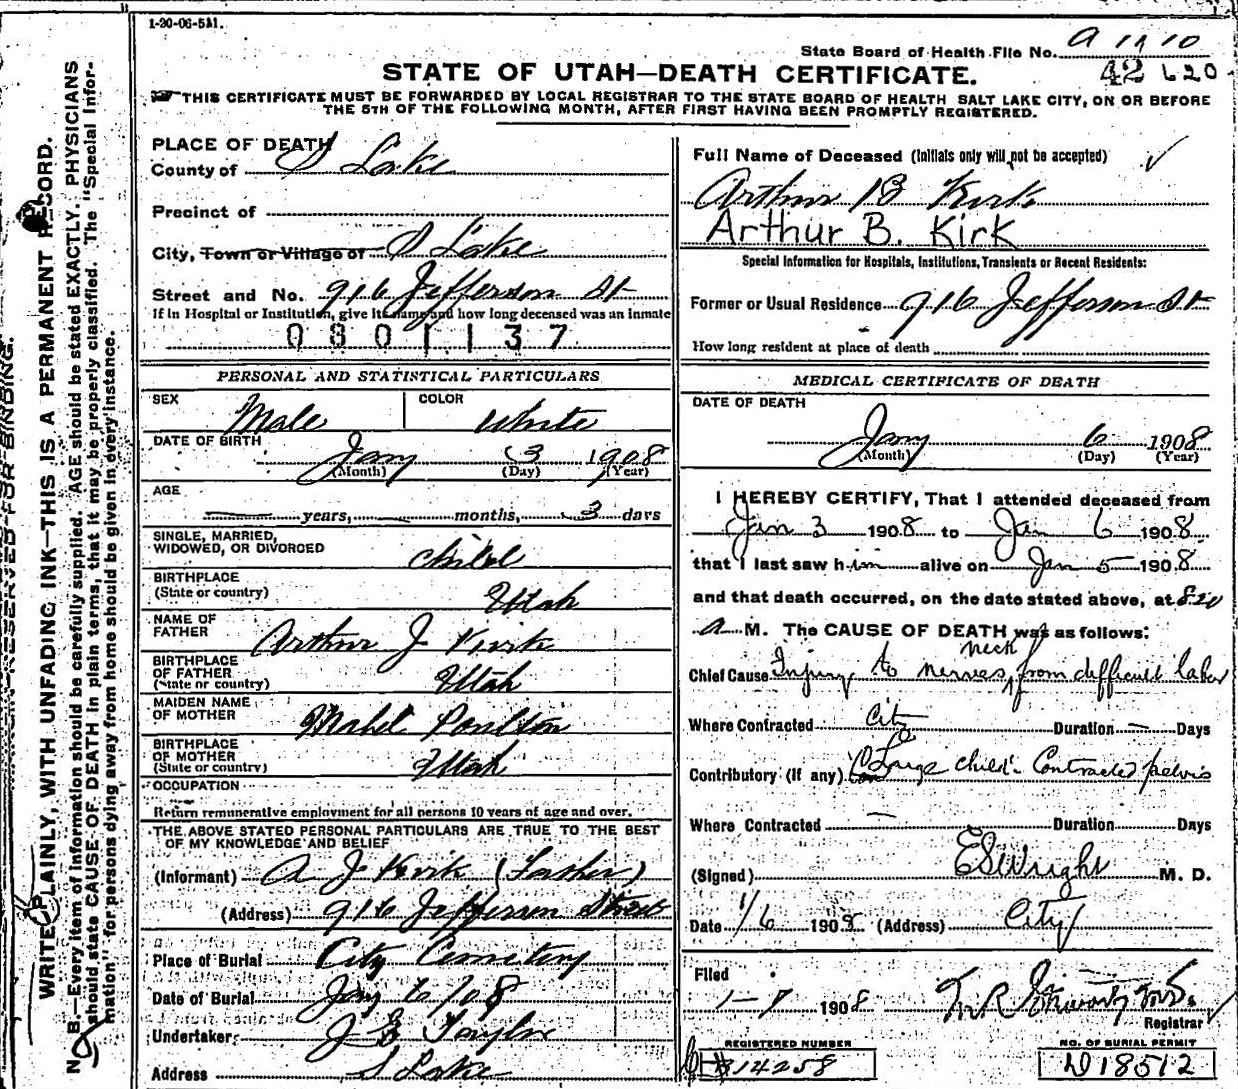 1-20-06-5M.
State Board of Health File No.
42 620
STATE OF UTAH—DEATH CERTIFICATE.
THIS CERTIFICATE MUST BE FORWARDED BY LOCAL REGISTRAR TO THE STATE BOARD OF HEALTH SALT LAKE CITY, ON OR BEFORE
THE 5TH OF THE FOLLOWING MONTH, AFTER FIRST HAVING BEEN PROMPTLY REGISTERED.
WRITE PLAINLY, WITH UNFADING INK—THIS IS A PERMANENT RECORD.
N. B.—Every item of information should be carefully supplied. AGE should be stated EXACTLY. PHYSICIANS
should state CAUSE OF DEATH in plain terms, that it may be properly classified. The "Special Infor-
mation" for persons dying away from home should be given in every instance.
RESERVED FOR BINDING.
PLACE OF DEATH
County of S Lake
Precinct of
City, Town or Village of S Lake
Street and No. 916 Jefferson St
If in Hospital or Institution, give its name and how long deceased was an inmate
0801137
PERSONAL AND STATISTICAL PARTICULARS
SEX Male COLOR White
DATE OF BIRTH Jany 3 1908
(Month) (Day) (Year)
AGE
years, months, 3 days
SINGLE, MARRIED,
WIDOWED, OR DIVORCED child
BIRTHPLACE
(State or country) Utah
NAME OF
FATHER Arthur J Kirk
BIRTHPLACE
OF FATHER
(State or country) Utah
MAIDEN NAME
OF MOTHER Mabel Poulton
BIRTHPLACE
OF MOTHER
(State or country) Utah
OCCUPATION
Return remunerative employment for all persons 10 years of age and over.
THE ABOVE STATED PERSONAL PARTICULARS ARE TRUE TO THE BEST
OF MY KNOWLEDGE AND BELIEF
(Informant) A J Kirk (Father)
(Address) 916 Jefferson Street
Place of Burial City Cemetery
Date of Burial Jany 6 / 08
Undertaker Taylor
Address S Lake
Full Name of Deceased (Initials only will not be accepted)
Arthur B Kirk
Arthur B. Kirk
Special Information for Hospitals, Institutions, Transients or Recent Residents:
Former or Usual Residence 916 Jefferson St
How long resident at place of death
MEDICAL CERTIFICATE OF DEATH
DATE OF DEATH
Jany 6 1908
(Month) (Day) (Year)
I HEREBY CERTIFY, That I attended deceased from
Jan 3 1908 to Jan 6 1908
that I last saw him alive on Jan 5 1908
and that death occurred, on the date stated above, at 820
a M. The CAUSE OF DEATH was as follows:
neck
Chief Cause Injury to nerves, from difficult labor
Where Contracted City Duration — Days
Contributory (if any) Large child - Contracted pelvis
Where Contracted — Duration Days
(Signed) E S Wright M. D.
Date 1/6 1908 (Address) City
Filed
1-7 1908
Registrar
REGISTERED NUMBER
14258
NO. OF BURIAL PERMIT
D18512